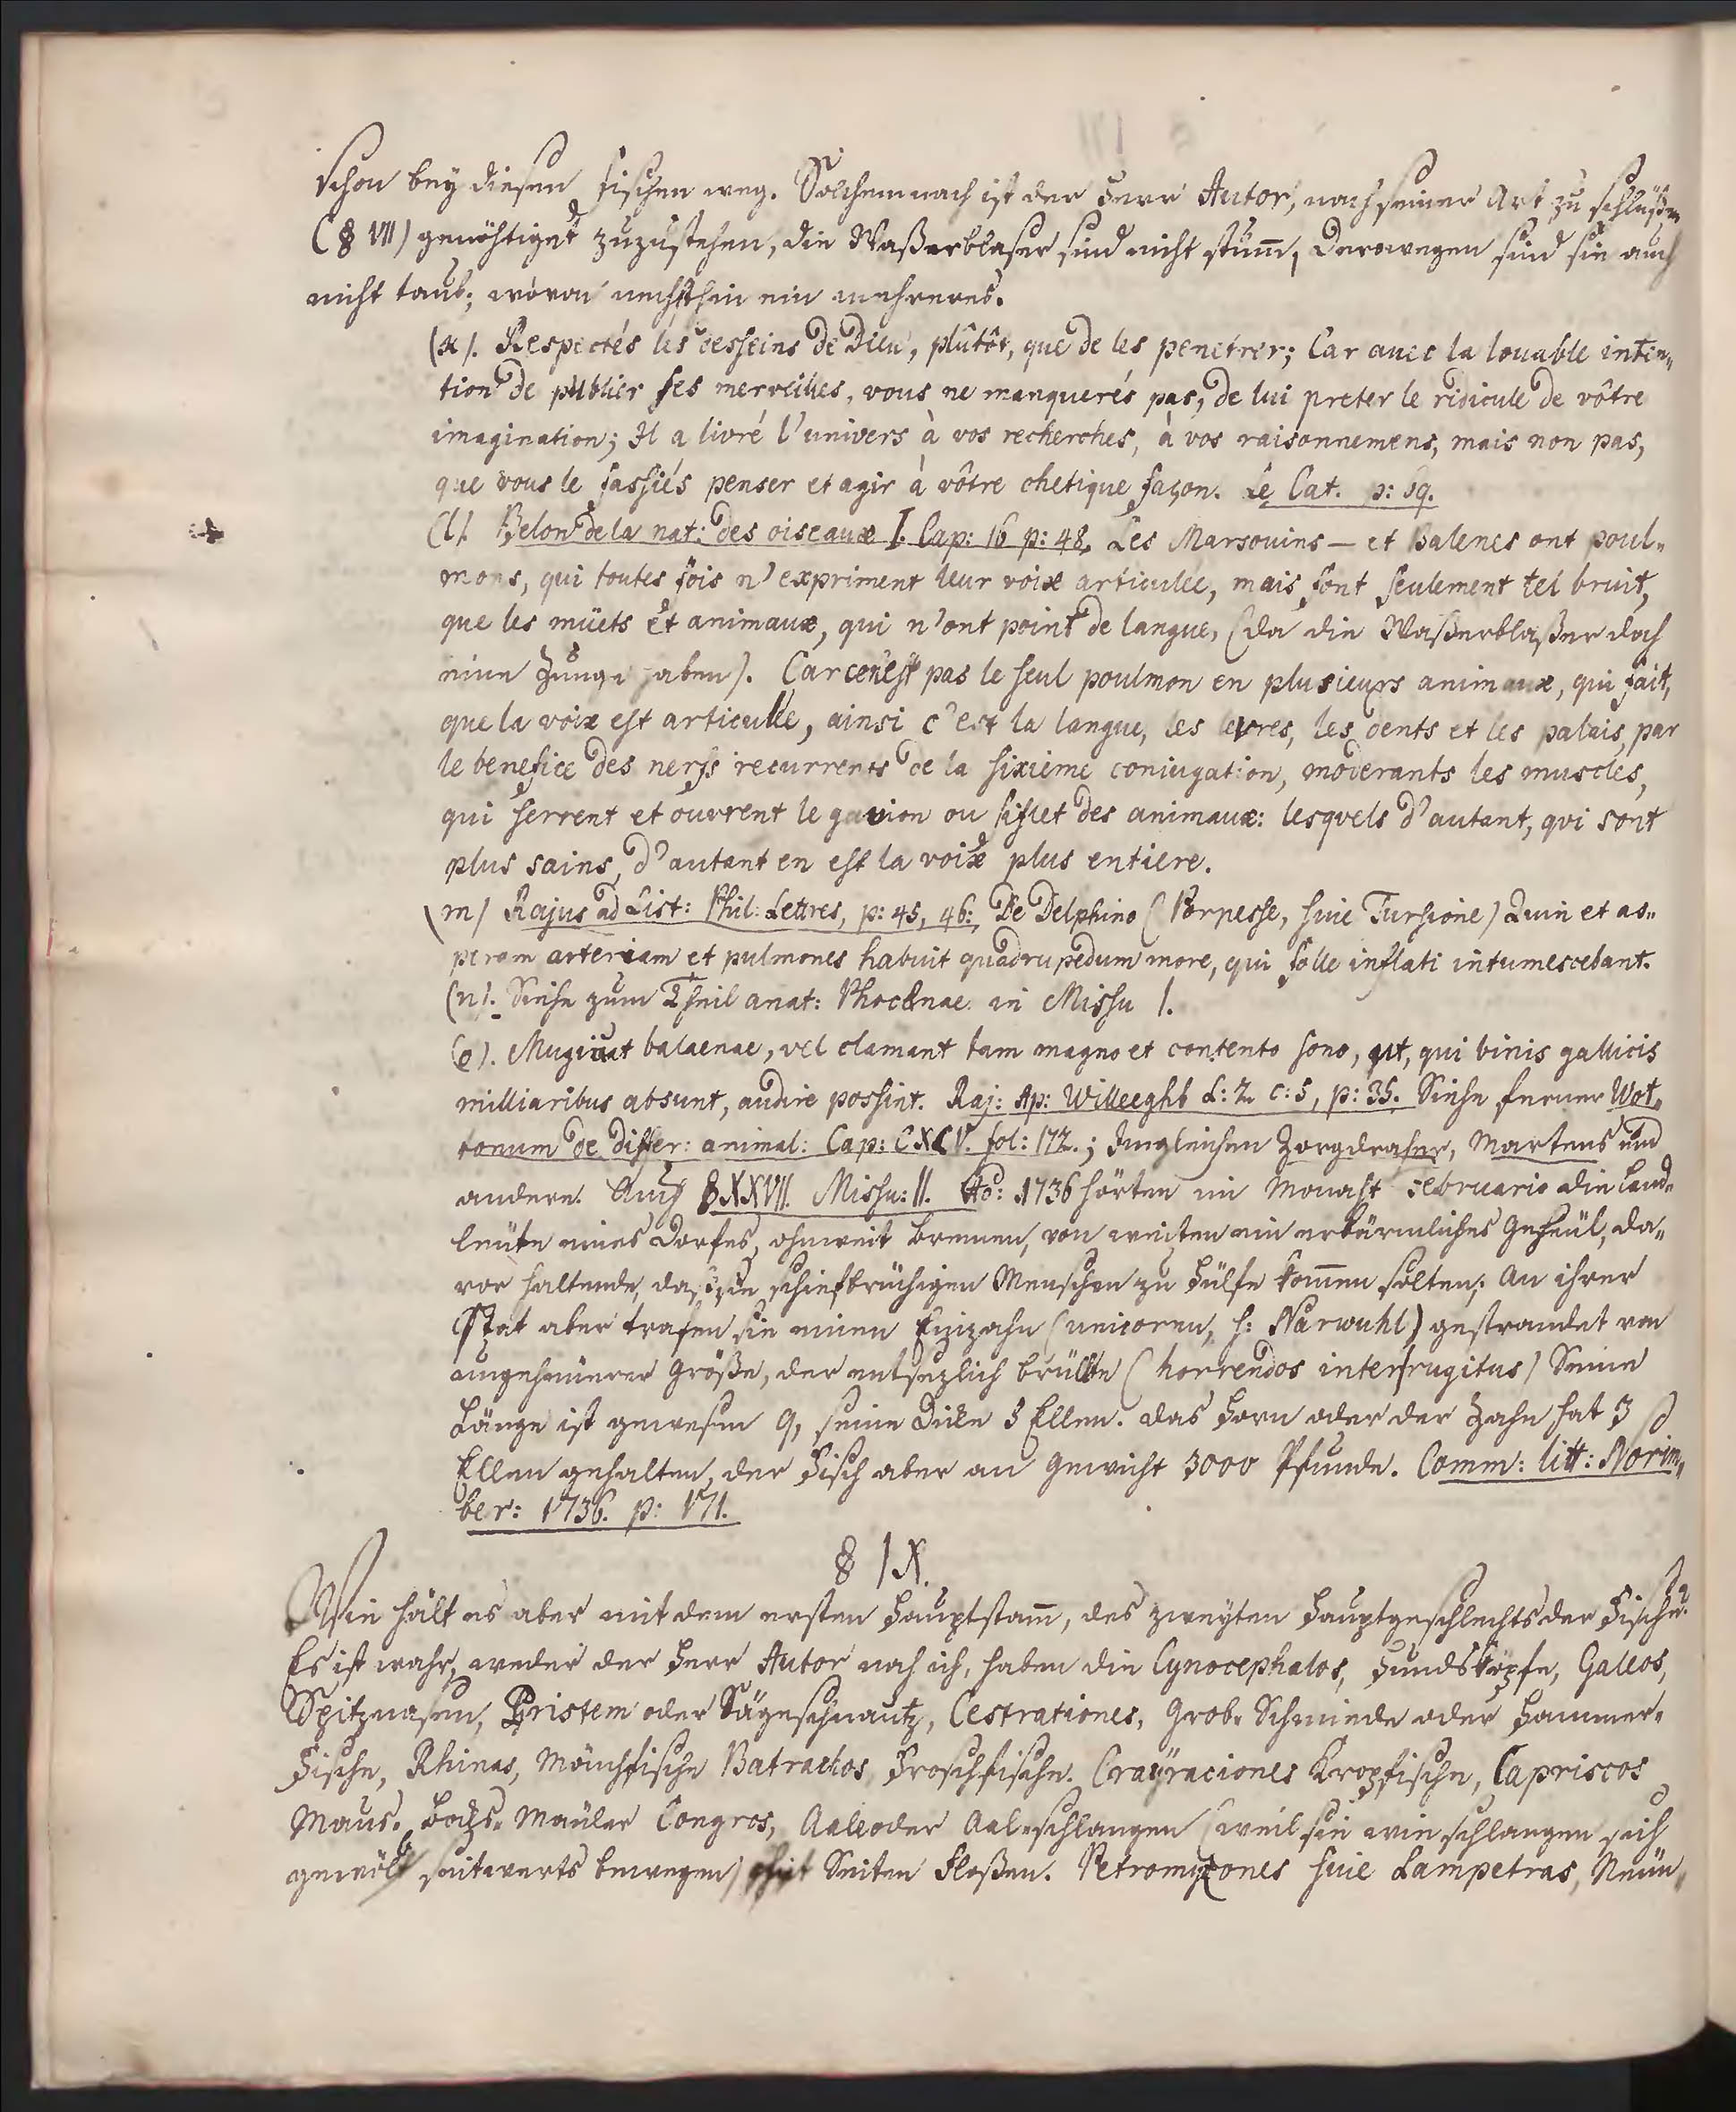 schon bey diesen Fischen weg. Solchemnach ist der Herr Autor, nach seiner Art zu schlüßen
(§ VII) genöhtiget zuzustehen, die Waßerblaser sind nicht stum̄, Derowegen sind sie auch
nicht taub; wovon nechsthin ein mehreres.
(x). Respectés les desseins de Dieu, plûtôt, que de les penetrer; Car avec la louable inten„
tion de publier ses merveilles, vous ne manquerés pas, de lui preter le ridicule de vôtre
imagination; Il a livré l'univers à vos recherches, à vos raisonnemens, mais non pas,
que vous le fassiés penser et agir à vôtre chetique façon. Le Cat. p: 59.
(l). Belon de la nat: des oiseaux I. Cap: 16 p: 48. Les Marsouins — et Balenes ont poul„
mons, qui toutes fois n'expriment leur voix articulée, mais font seulement tel bruit,
que les müets et animaux, qui n'ont point de langue, (da die Waßerblaßer doch
eine Zunge haben). Car ce n'est pas le seul poulmon en plusieurs animaux, qui fait,
que la voix est articulée, ainsi c'est la langue, les levres, les dents et les palais, par
le benefice des nerfs recurrents de la sixieme coniugation, moderants les muscles,
qui serrent et ouvrent le gavion ou siflet des animaux: lesquels d'autant, qvi sont
plus sains, d'autant en est la voix plus entiere.
(m) Rajus ad List: Phil: Lettres, p: 45, 46: De Delphino (Porpesse, sive Tursione) Quin et as„
peram arteriam et pulmones habuit quadrupedum more, qui folle inflati intumescebant.
(n). Siehe zum Theil anat: Phocænae in Missu I.
(o). Mugiunt balaenae, vel clamant tam magno et contento sono, ut, qui binis gallicis
milliaribus absunt, audire possint. Raj: Ap: Willeeghb L: 2. c: 5, p: 35. Siehe ferner Wot„
tonum de differ: animal: Cap: CXCV. fol: 172.; Imgleichen Zorgdrager, Martens und
andere. Auch § XXVII. Missu: II. Ao: 1736 hörten im Monaht Februario die Land„
leute eines Dorfes, ohnweit Bremen, von weiten ein erbärmliches Geheül, da„
vor haltende, daß sie schiefbrüchigen Menschen zu Hülfe kom̄en solten; An ihrer
Stat aber trafen sie einen Einzahn (unicornu, s: Narwuhl) gestrandet von
ungeheürer Größe, der entsezlich brüllte (horrendos inter rugitus) Seine
Länge ist gewesen 9, seine Dicke 3 Ellen. das Horn oder der Zahn hat 3
Ellen gehalten, der Fisch aber an Gewicht 3000 Pfunde. Comm: litt: Norim„
ber: 1736. p: 171.
§ IX.
Wie hält es aber mit dem ersten Hauptstam̄, des zweyten Hauptgeschlechts der Fische?
Es ist wahr, weder der Herr Autor noch ich, haben die Cynocephalos, Hundsköpfe, Galeos,
Spitznasen, Pristem oder Sägeschnautz, Cestrationes, Grob-Schmiede oder Hammer-
Fische, Rhinas, Mönchfische Batrachos, Froschfische. Crayraciones Kropffische, Capriscos
Maus-, Bocks-Mäuler Congros, Aale oder Aal-schlangen (weil sie wie schlangen sich
seitwerts bewegen) Seiten Floßen. Petromyzones sive Lampetras, Neün„